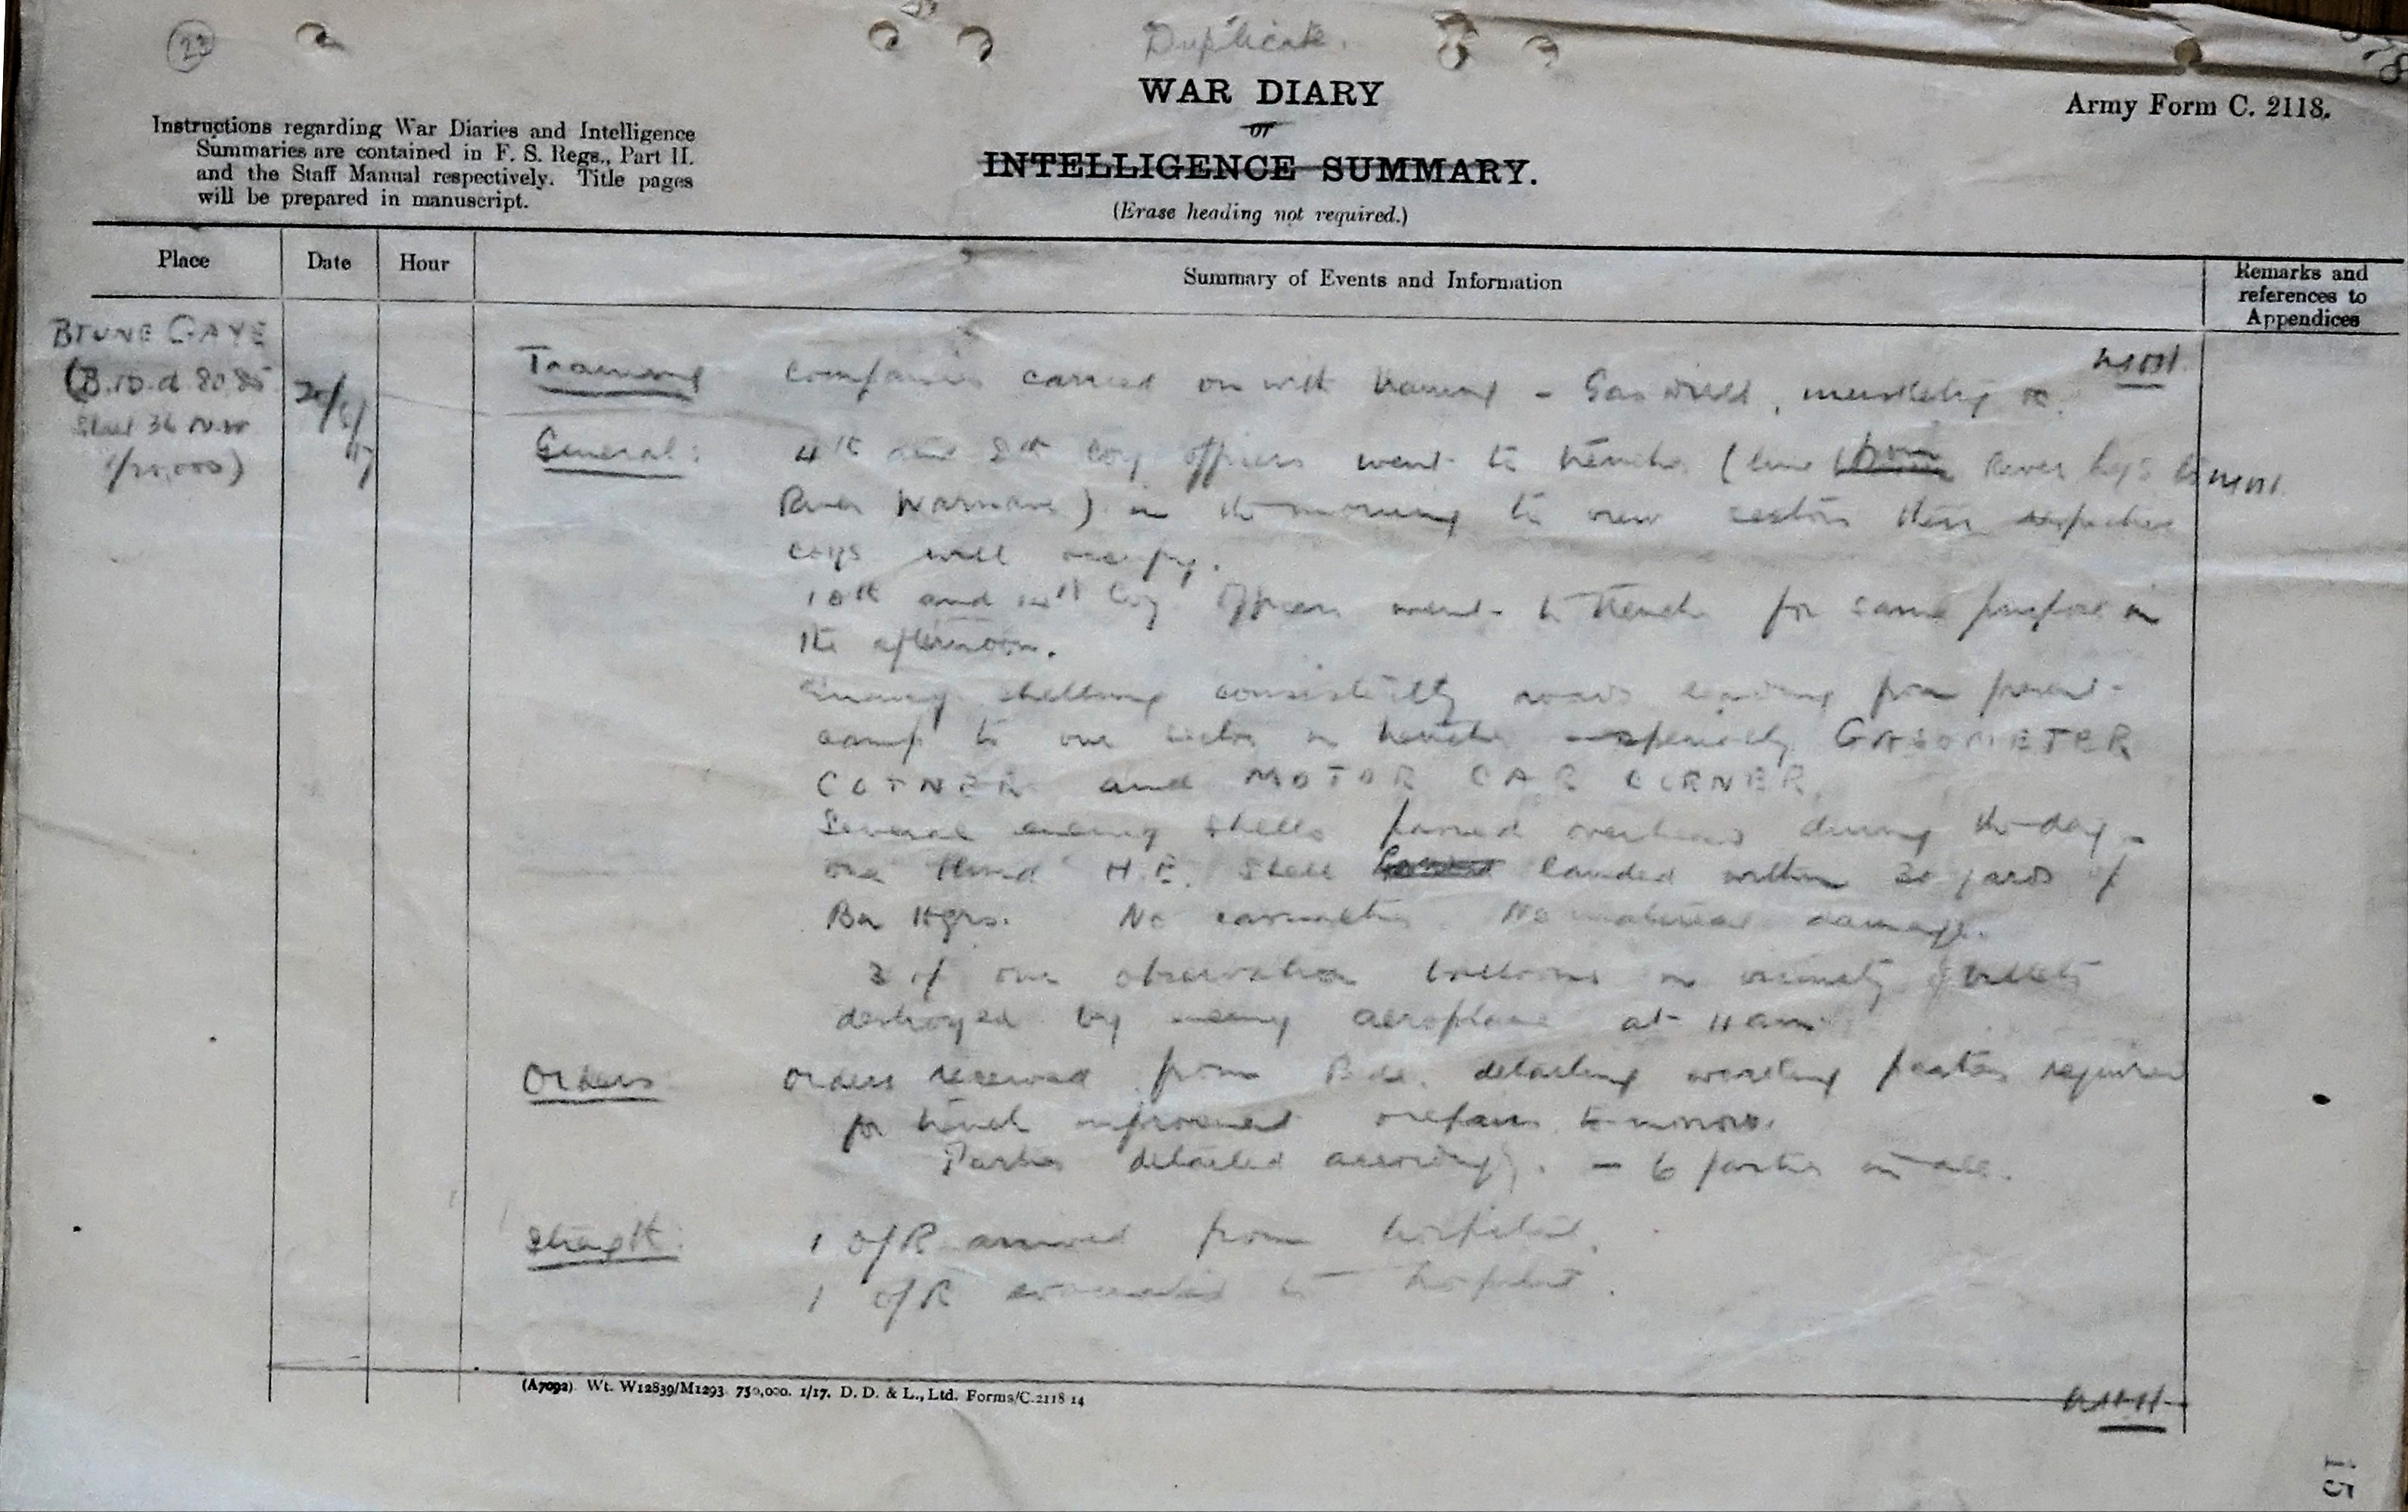 22
Duplicate.
WAR DIARY
or
INTELLIGENCE SUMMARY.
(Erase heading not required.)
Army Form C. 2118.
Instructions regarding War Diaries and Intelligence
Summaries are contained in F. S. Regs., Part II.
and the Staff Manual respectively. Title pages
will be prepared in manuscript.
Place
Date
Hour
Summary of Events and Information
Remarks and
references to
Appendices
BRUNE GAYE
(B.10.d 80.85
Sheet 36 N.W
1/20,000)
20/6/
17
Training Companies carried on with training - Gas drill, musketry etc.
General: 4th and 8th Coy officers went to trenches (line from River Lys to
River Warnave) in the morning to view sectors their respective
coys will occupy.
10th and 14th Coy Officers went to trenches for same purpose in
the afternoon.
Enemy shelling consistently roads leading from present
camp to our sector in trenches especially GASOMETER
CORNER and MOTOR CAR CORNER.
Several enemy shells passed overhead during the day -
one H.E. shell landed within 30 yards of
Bn Hqrs. No casualties. No material damage.
3 of our observation balloons in vicinity of billets
destroyed by enemy aeroplane at 11 am
Orders Orders received from Bde. detailing working parties required
for trench improvement repairs to-morrow.
Parties detailed accordingly. - 6 parties in all.
Strength: 1 O/R arrived from hospital.
1 O/R evacuated to hospital.
(A7092) Wt. W12839/M1293 750,000. 1/17. D. D. & L., Ltd. Forms/C.2118 14
15